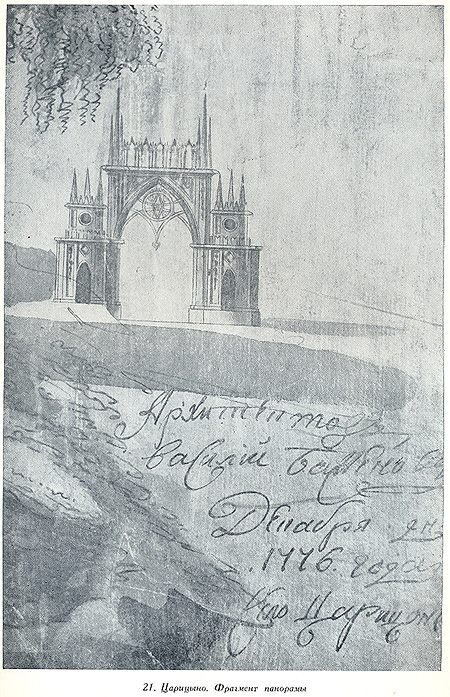 Архитектор
василій Баженов
Декабря дн
1776. года
Царицон
21. Царицыно. Фрагмент панорамы